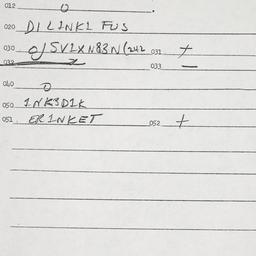 012 0
020 DILINKI FUS
030 0/5VIXN83N(242 031 +
032 033 —
040 0
050 INK3DIK
051 ERINKET 052 +